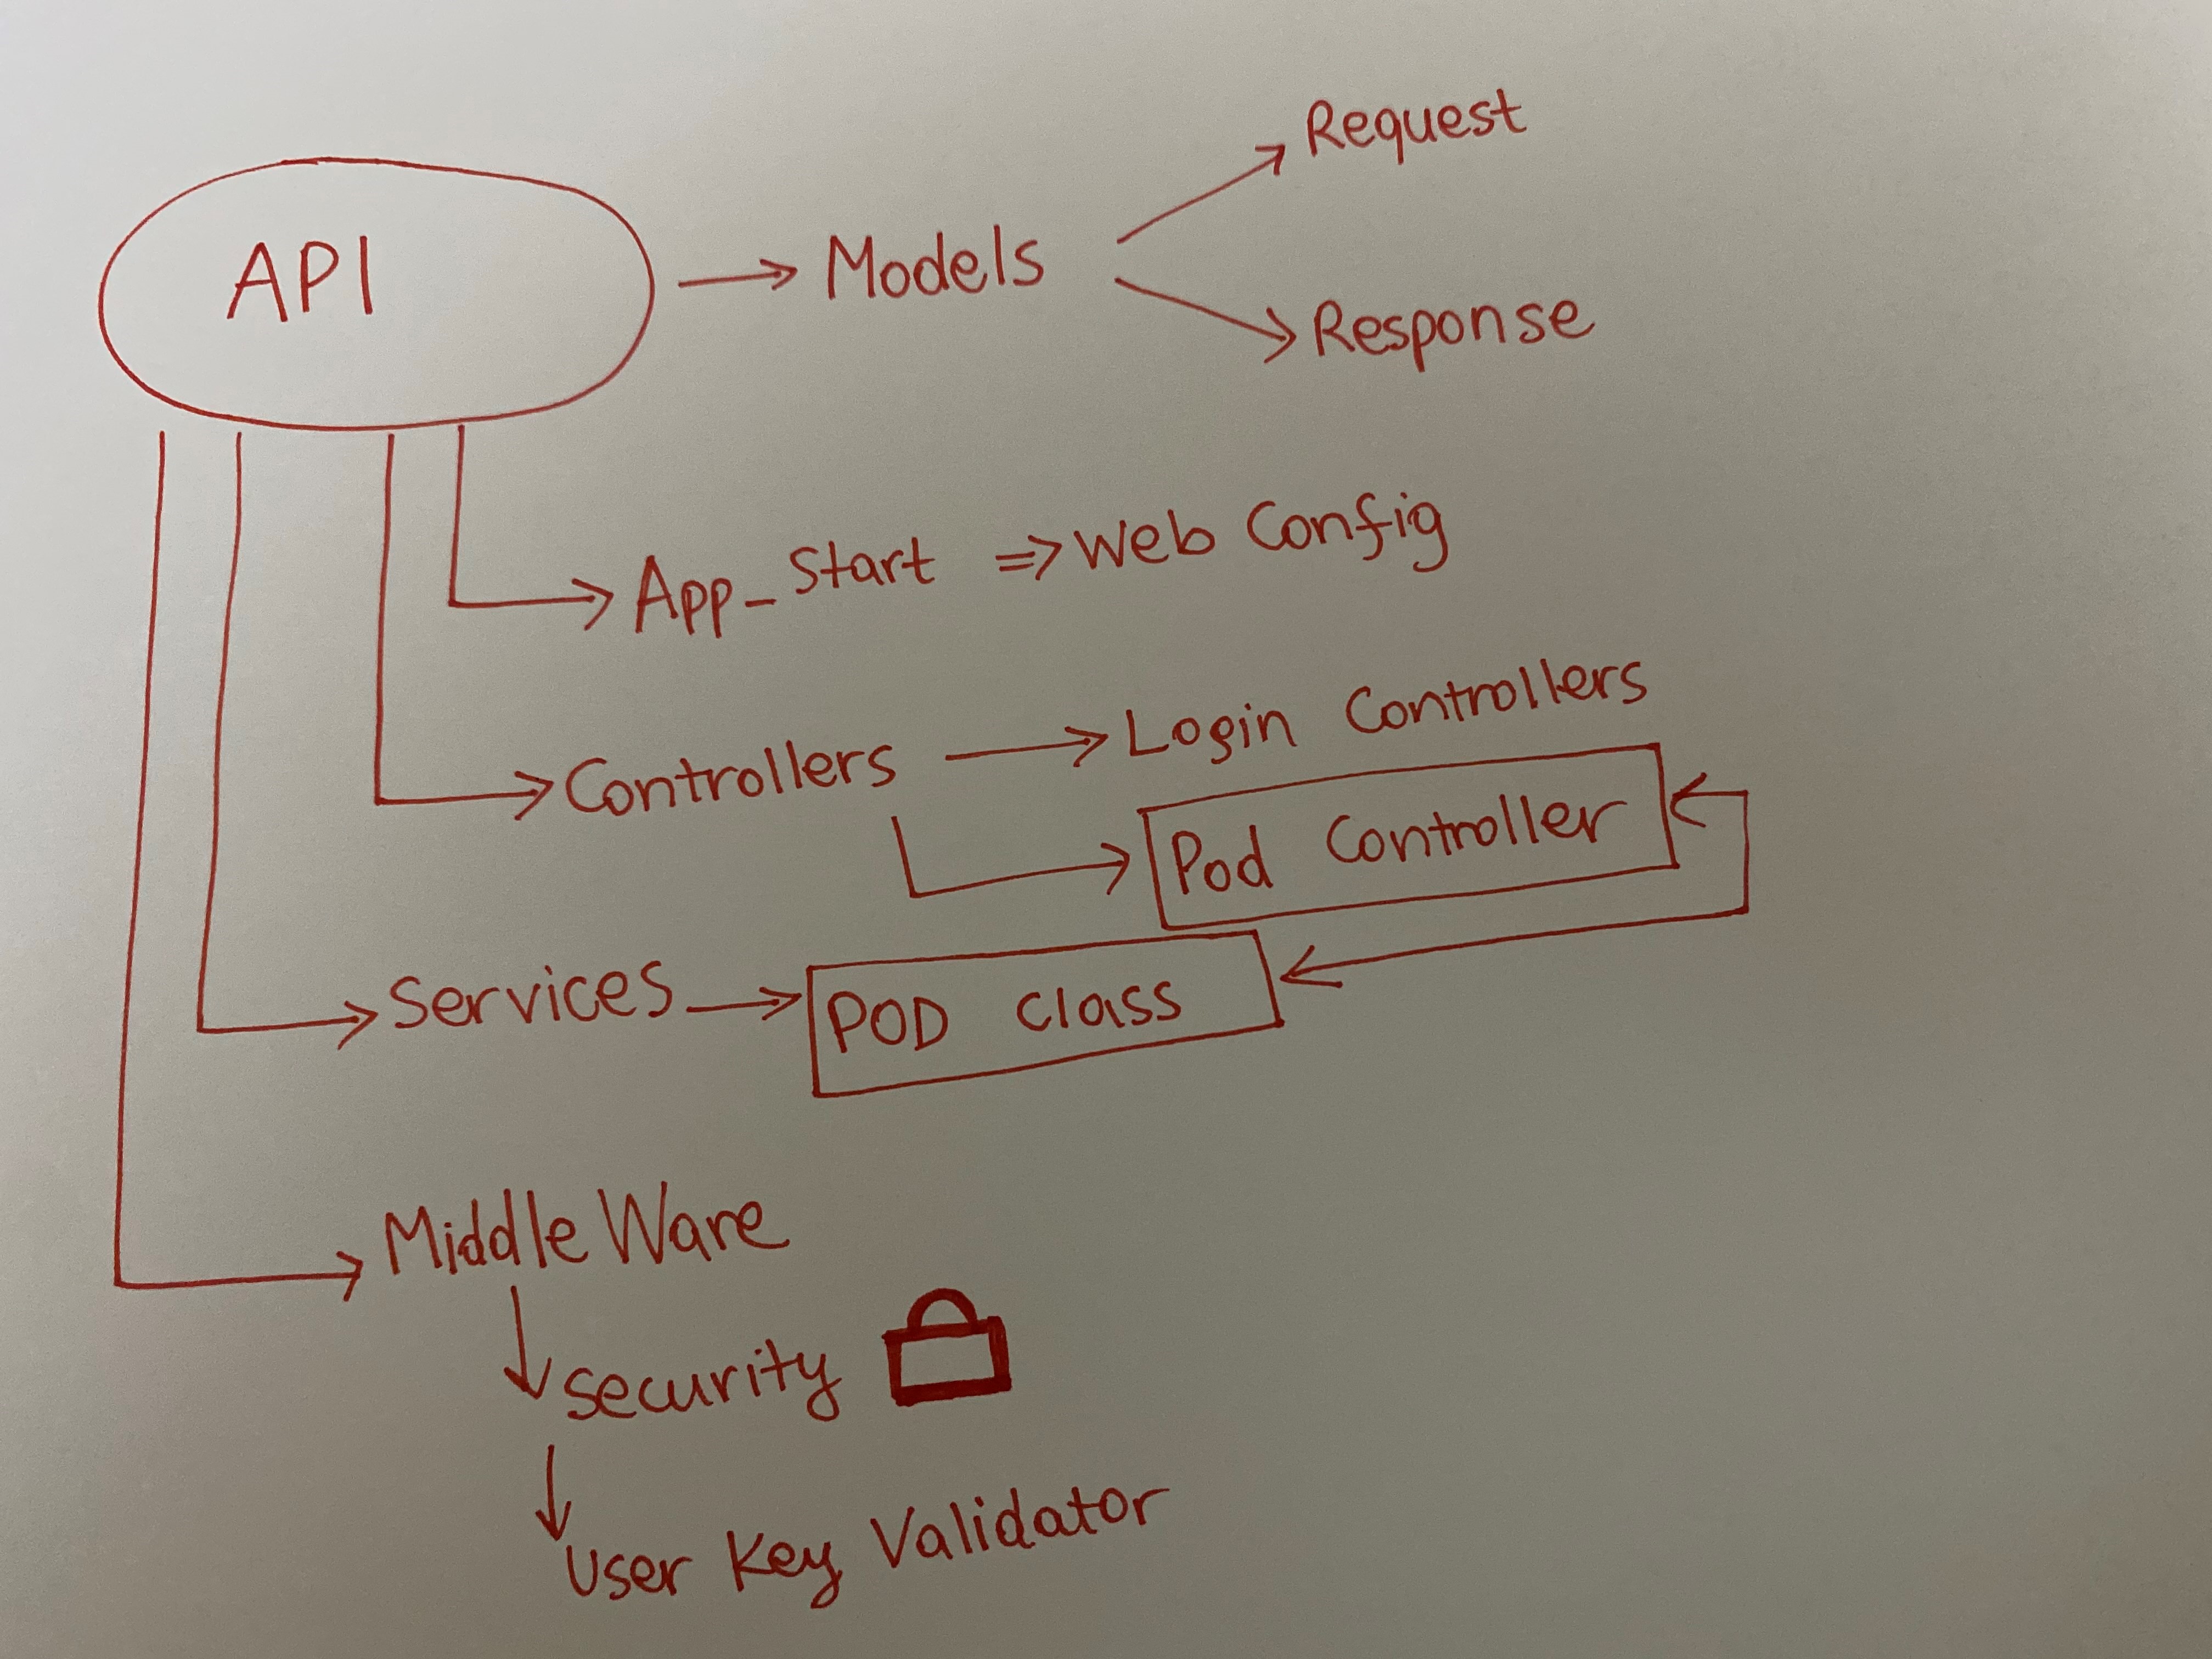 API
Models
Request
Response
App_Start => Web Config
Controllers
Login Controllers
Pod Controller
Services
POD Class
Middle Ware
security
User Key Validator